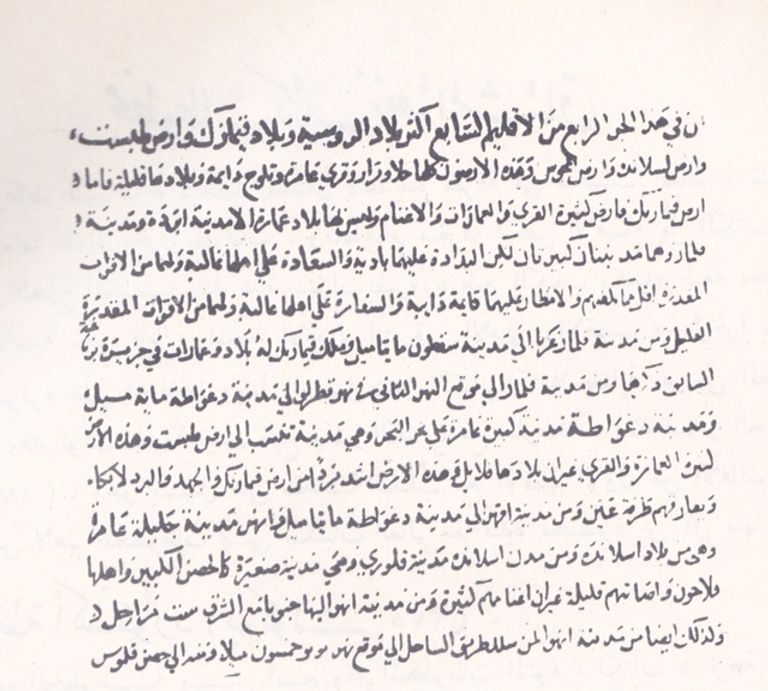 ان في هذا الجزء الرابع من الاقليم السابع اكثر بلاد الروسية وبلاد فيمارك وارض طبست
وارض اسلانده وارض المجوس وهذه الارضون كلها خلاء وبرار وقرى عامرة وثلوج دايمة وبلادها قليلة فاما
ارض فيمارك فارض كثيرة القرى والعمارات والاغنام وليس لها بلاد عمارة الا مدينة ابزة ومدينة
قلمار وهما مدينتان كبيرتان لكن البداوة عليها بادية والشقاوة على اهلها غالبة ولهما من الاقوات
المقدرة اقل ما يكفيهم والامطار عليها قايمة دايبة على اهلها غالبة ولهما من الاقوات المقدرة
القليل ومن مدينة قلمار غربا الى مدينة سقطون مايتا ميل وملك فيمارك له بلاد وعمارات في جزيرة
السابق ذكرها ومن مدينة قلمار الى موقع النهر الثاني الى مدينة دغواطة ماية ميل
ومدينة دغواطة مدينة كبيرة عامرة على نحر البحر وهي مدينة تنسب الى ارض طبست وهذه الارض
كثيرة العمارة والقرى غير ان بلادها قلايل وهذه الارض اشد بردا من ارض فيمارك والجمد والبرد لا يكاد
يفارقهم طرفة عين ومن مدينة انهو الى مدينة دغواطة مايتا ميل فانهو مدينة جليلة عامرة
وهي من بلاد اسلانده ومن مدن اسلانده مدينة قلوري وهي مدينة صغيرة كالحصن الكبير واهلها
فلاحون واصاباتهم قليلة غير ان اغنامهم كثيرة ومن مدينة انهو اليها جنوبا مع الشرق ست مراحل
وكذلك ايضا من مدينة انهو لمن سلك طريق الساحل الى موقع نهر وخمسون ميلا ومنه الى حصن فلموس